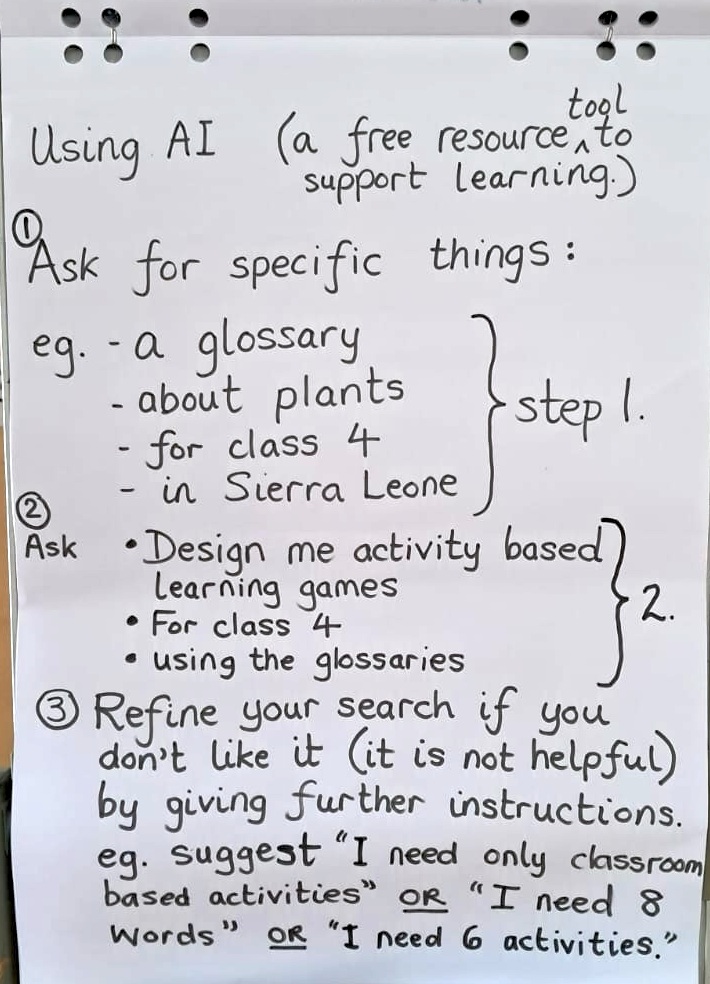 Using AI (a free resource ^ tool to
support learning.)
① Ask for specific things:
eg. - a glossary
- about plants
- for class 4
- in Sierra Leone
step 1.
②
Ask • Design me activity based
learning games
• For class 4
• using the glossaries
2.
③ Refine your search if you
don't like it (it is not helpful)
by giving further instructions.
eg. suggest "I need only classroom
based activities" OR "I need 8
words" OR "I need 6 activities."